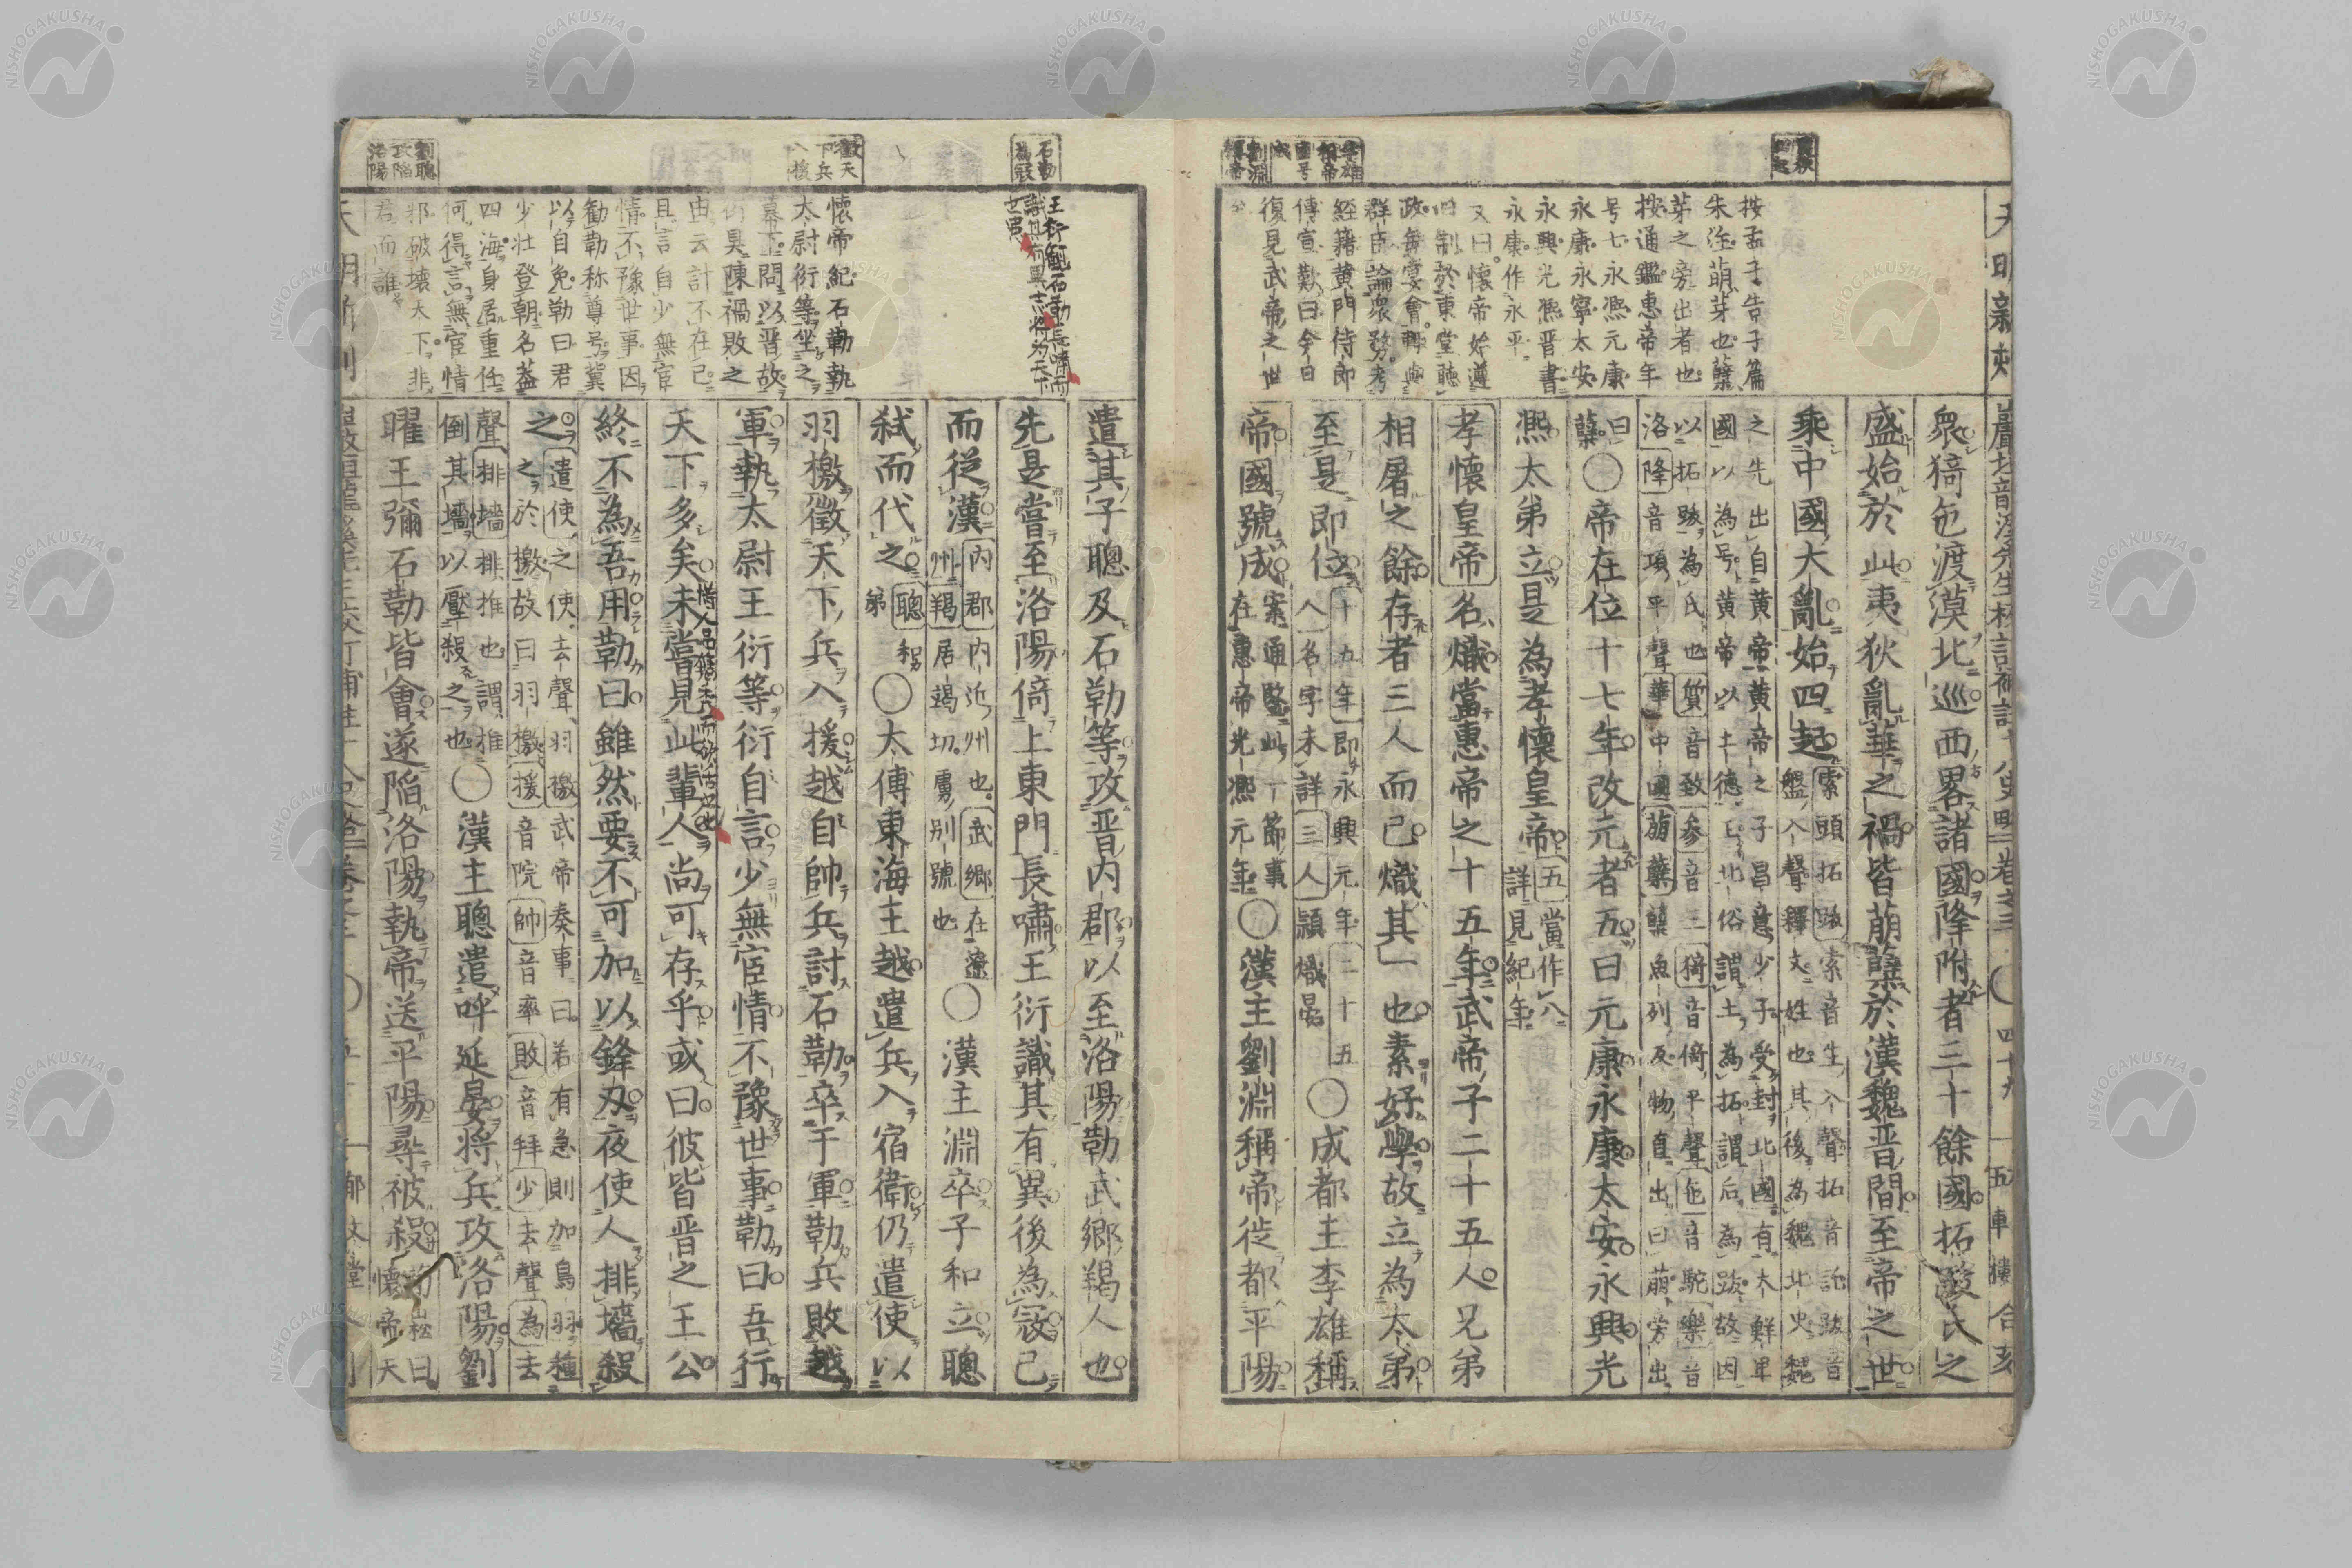 NISHOGAKUSHA
衆猗㐌渡漠北巡西略諸國降附者三十餘國拓跋氏之
盛始於此夷狄亂華之禍皆萠蘖於漢魏晋間至帝之世
乘中國大亂始四起
索頭拓跋索音生入聲拓音託跋音
盤入聲釋文姓也其後為魏北史魏
之先出自黄帝黄帝之子昌意少子受封北國有大鮮卑
國以為号黄帝以土德王北俗謂土為拓謂后為跋故因
以拓跋為氏也質音致参音三猗音倚平聲㐌音駝樂音
洛降音項平聲華中國萠蘖蘖魚列反物自出曰萠旁出
曰蘖
○帝在位十七年改元者五曰元康永康太安永興光
凞太弟立是為孝懷皇帝
五當作八
詳見紀年
孝懷皇帝名熾當惠帝之十五年武帝子二十五人兄弟
相屠之餘存者三人而已熾其一也素好學故立為太弟
至是即位
十五年即永興元年二十五
人名字未詳三人頴熾晏
○成都王李雄稱
帝國號成
索通鑒此一節事
在惠帝光凞元年
○漢主劉淵稱帝徙都平陽
按孟子告子篇
朱注萠芽也蘖
芽之旁出者也
按通鑑惠帝年
号七永凞元康
永康永寧太安
永興光凞晋書
永康作永平
又曰懷帝始遵
旧制於東堂聽
政每宴會輙與
群臣論衆務考
經籍黄門侍郎
傅宣歎曰今日
復見武帝之世
遣其子聰及石勒等攻晋内郡以至洛陽勒武郷羯人也
先是嘗至洛陽倚上東門長嘯王衍識其有異後為寇已
而從漢
内郡内近州也武郷在遼
州羯居竭切匈別號也
○漢主淵卒子和立聰
弑而代之
聰和
弟
○太傅東海王越遣兵入宿衛仍遣使以
羽檄徵天下兵入援越自帥兵討石勒卒于軍勒兵敗越
軍執太尉王衍等衍自言少無宦情不豫世事勒曰吾行
天下多矣未嘗見此輩人尚可存乎或曰彼皆晋之王公
終不為吾用勒曰雖然要不可加以鋒刃夜使人排墻殺
之
遣使之使去聲羽檄武帝奏事曰若有急則加鳥羽種
之於檄故曰羽檄援音院帥音率敗音拜少去聲為去
聲排墻排推也謂推
倒其墻以壓殺之也
○漢主聰遣呼延晏將兵攻洛陽劉
曜王彌石勒皆會遂陷洛陽執帝送平陽尋被殺
懷帝天
石勒
為寇
徵天
下兵
入援
劉聰
攻陷
洛陽
懷帝紀石勒執
太尉衍等坐之
幕下問以晋故
衍具陳禍敗之
由云計不在己
且言自少無宦
情不豫世事因
勧勒称尊号冀
以自免勒曰君
少壮登朝名蓋
四海身居重任
何得言無宦情
邪破壊天下非
君而誰